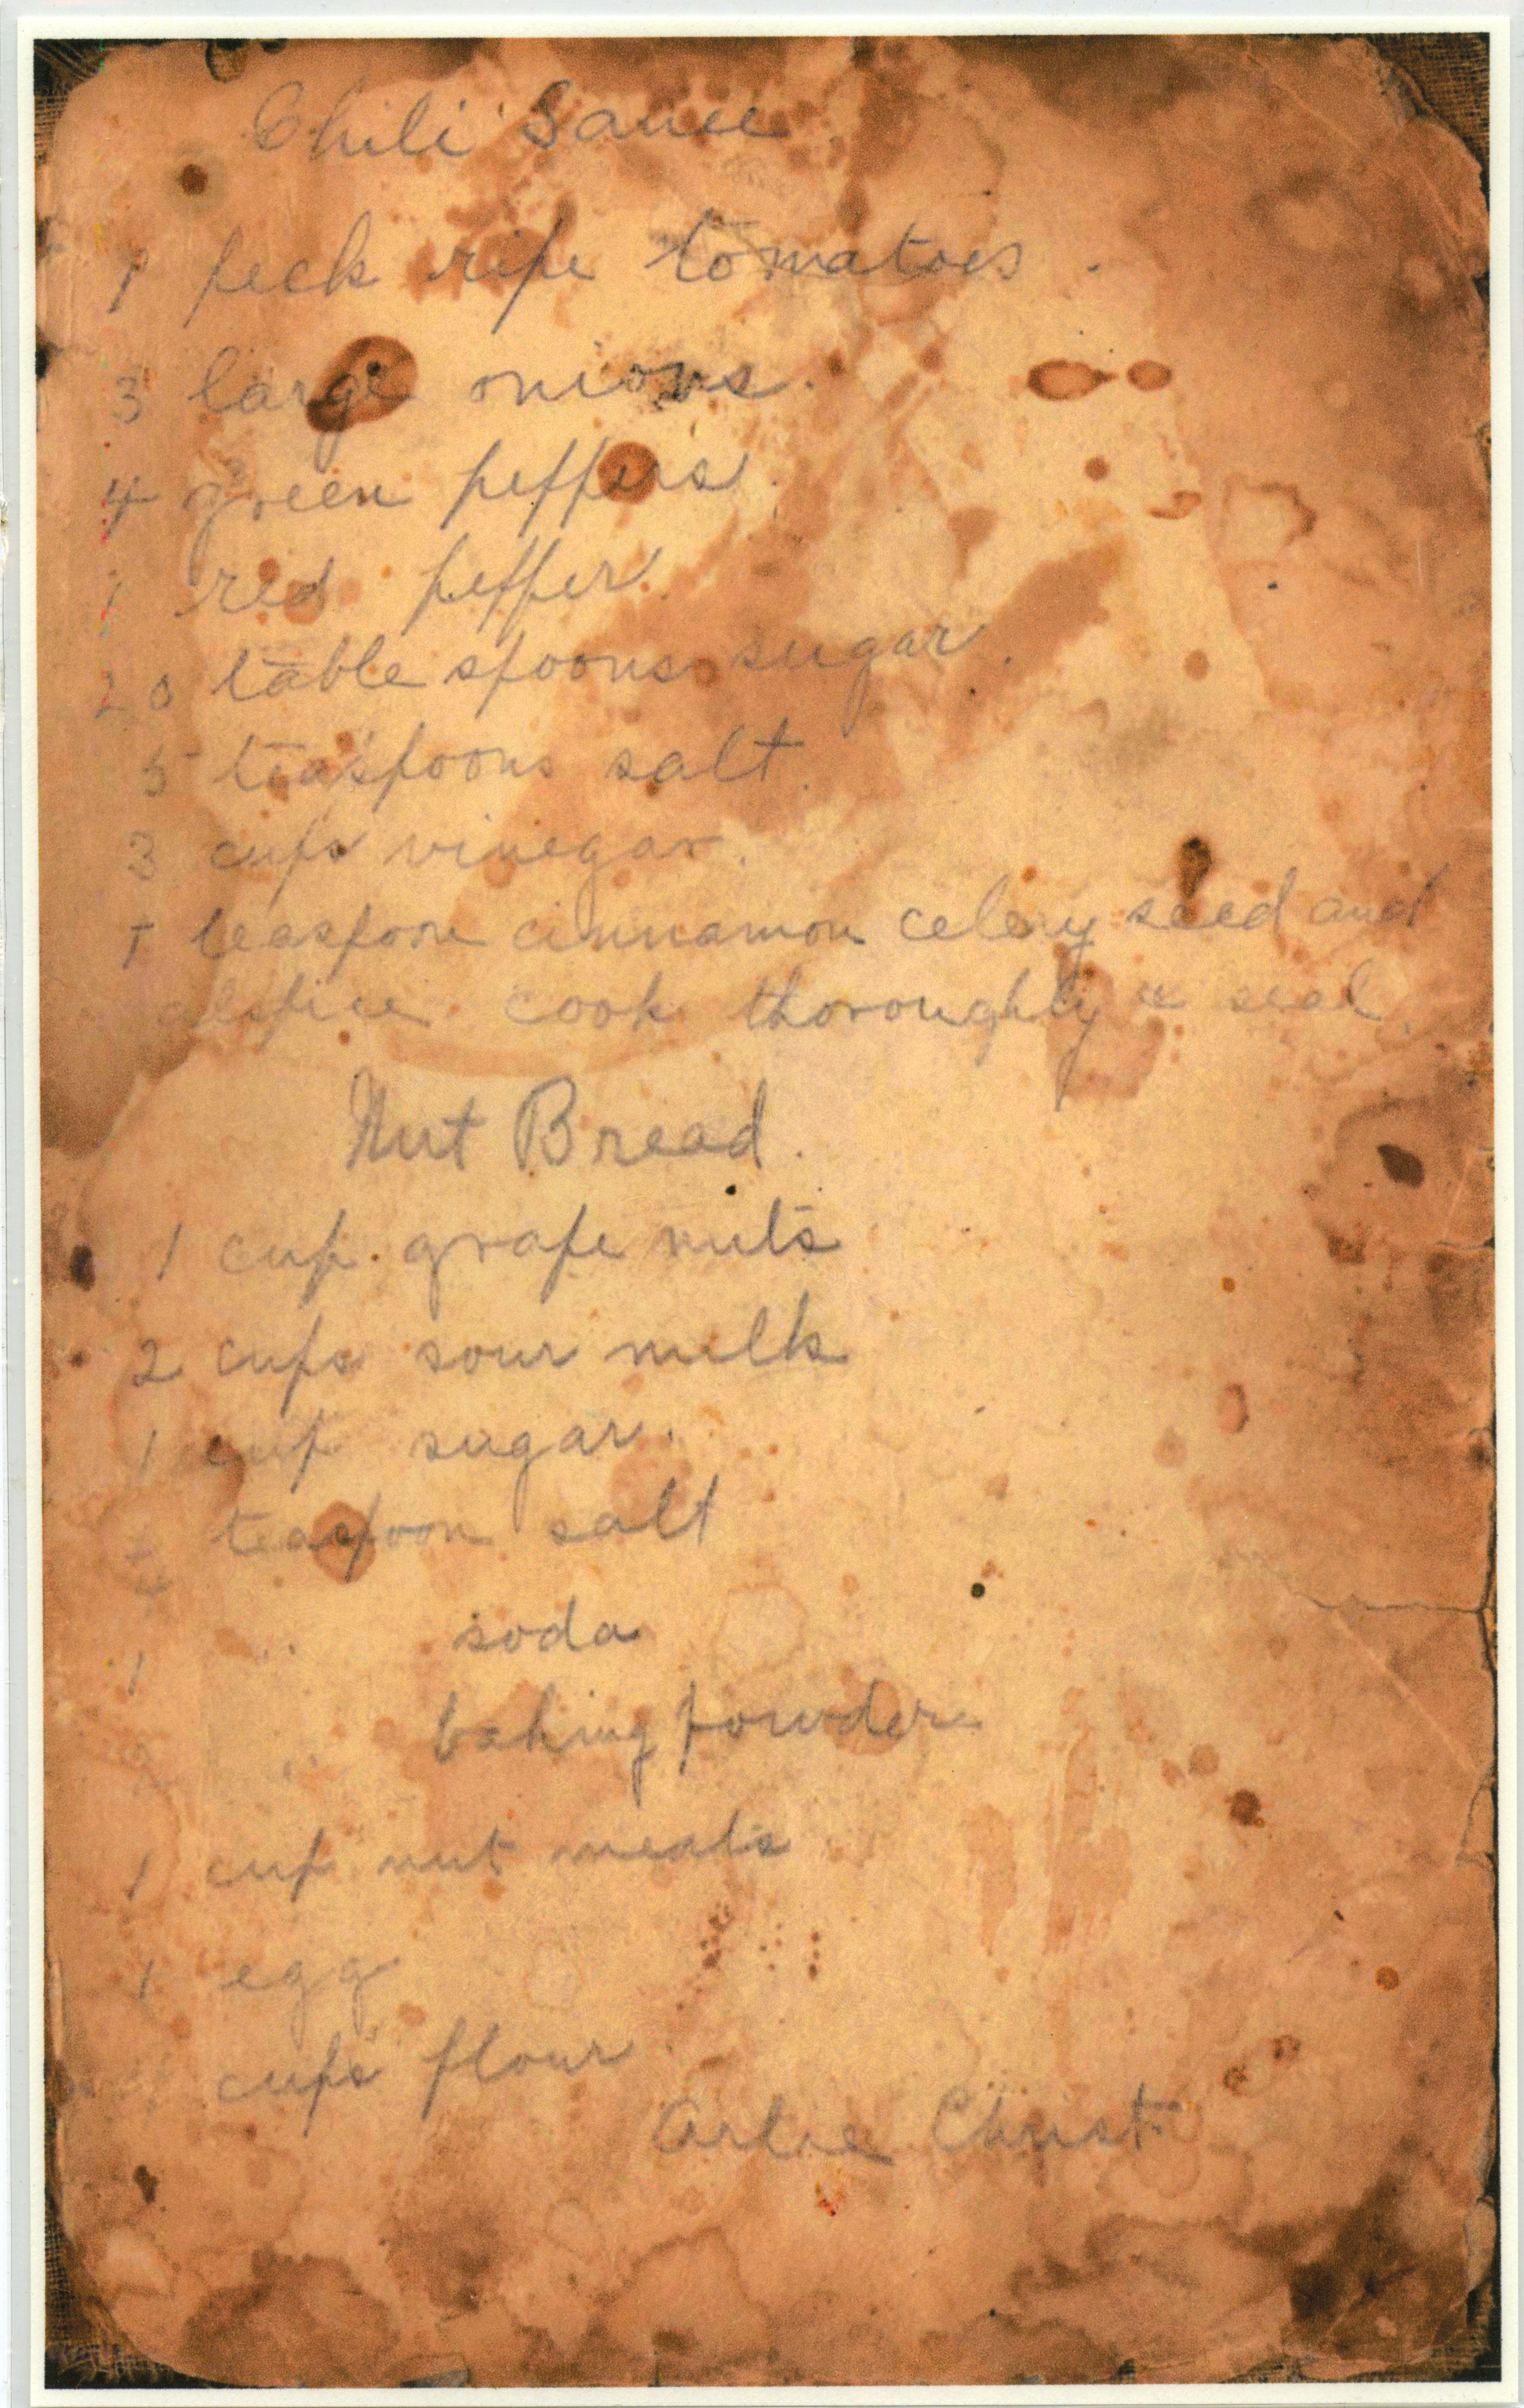 Chili Sauce
1 peck ripe tomatoes.
3 large onions.
4 green peppers.
1 red pepper.
20 table spoons sugar.
5 teaspoons salt.
3 cups vinegar.
1 teaspoon cinnamon celery seed and
alspice. cook thoroughly & seal.
Nut Bread.
1 cup grape nuts
2 cups sour milk
1 cup sugar.
teaspoon salt
1 " soda
" baking powder
1 cup nut meats
1 egg
cups flour.
Arlie Christ